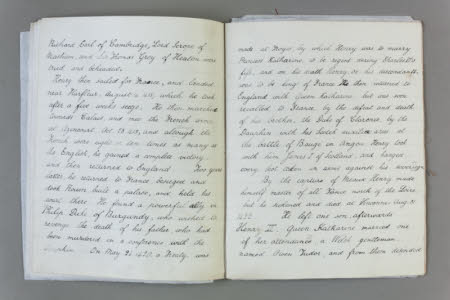 Richard Earl of Cambridge, Lord Scrope of
Masham, and Sir Thomas Grey of Heaton were
tried and beheaded.
Henry then sailed for France, and landed
near Harfleur, August 1415, which he took
after a five weeks siege. He then marched
towards Calais, and met the French army
at Agincourt Oct 25 1415, and although the
French were eight or ten times as many as
the English, he gained a complete victory
and then returned to England Two years
later he returned to France besieged and
took Rouen built a palace, and held his
court there He found a powerful ally in
Philip Duke of Burgundy, who wished to
revenge the death of his father who had
been murdered in a conference with the
Dauphin. On May 21 1420, a treaty was
made at Troyes by which Henry was to marry
Princess Katharine, to be regent during
life, and on his death Henry or his descendants
was to be King of France He then returned to
England with Queen Katharine but was soon
recalled to France by the defeat and death
of his brother, the Duke of Clarence, by the
Dauphin with his Scotch auxiliaries at
the battle of Baugé in Anjou Henry took
with him James I of Scotland, and hanged
every Scot taken in arms against his sovereign
By the capture of Meaux Henry made
himself master of all France north of the Loire
but he sickened and died at Vincennes Aug 31
1422 He left one son afterwards
Henry VI. Queen Katharine married one
of her attendants a Welsh gentleman
named Owen Tudor, and from them descended